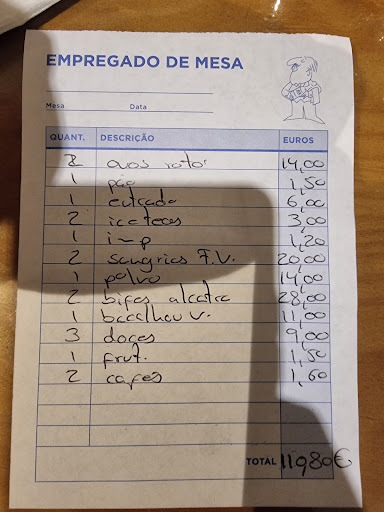 EMPREGADO DE MESA
Mesa Data
QUANT. DESCRIÇÃO EUROS
2 ovos rotos 14,00
1 pão 1,50
1 6,00
2 ice teas 3,00
1 imp 1,20
2 sangrias F.V. 20,00
1 polvo 14,00
2 bifes alcatra 28,00
1 bacalhau v. 11,00
3 doces 9,00
1 frut. 1,50
2 cafes 1,60
TOTAL 110,80€